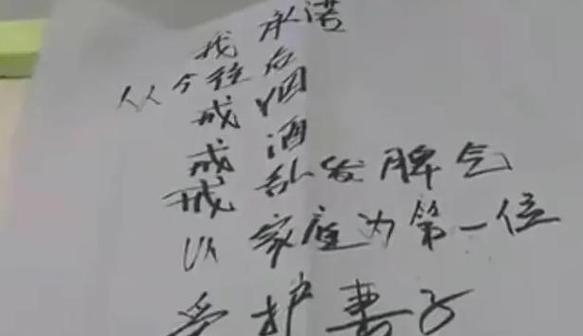 我承诺
从今往后
戒烟
戒酒
戒乱发脾气
以家庭为第一位
爱护妻子